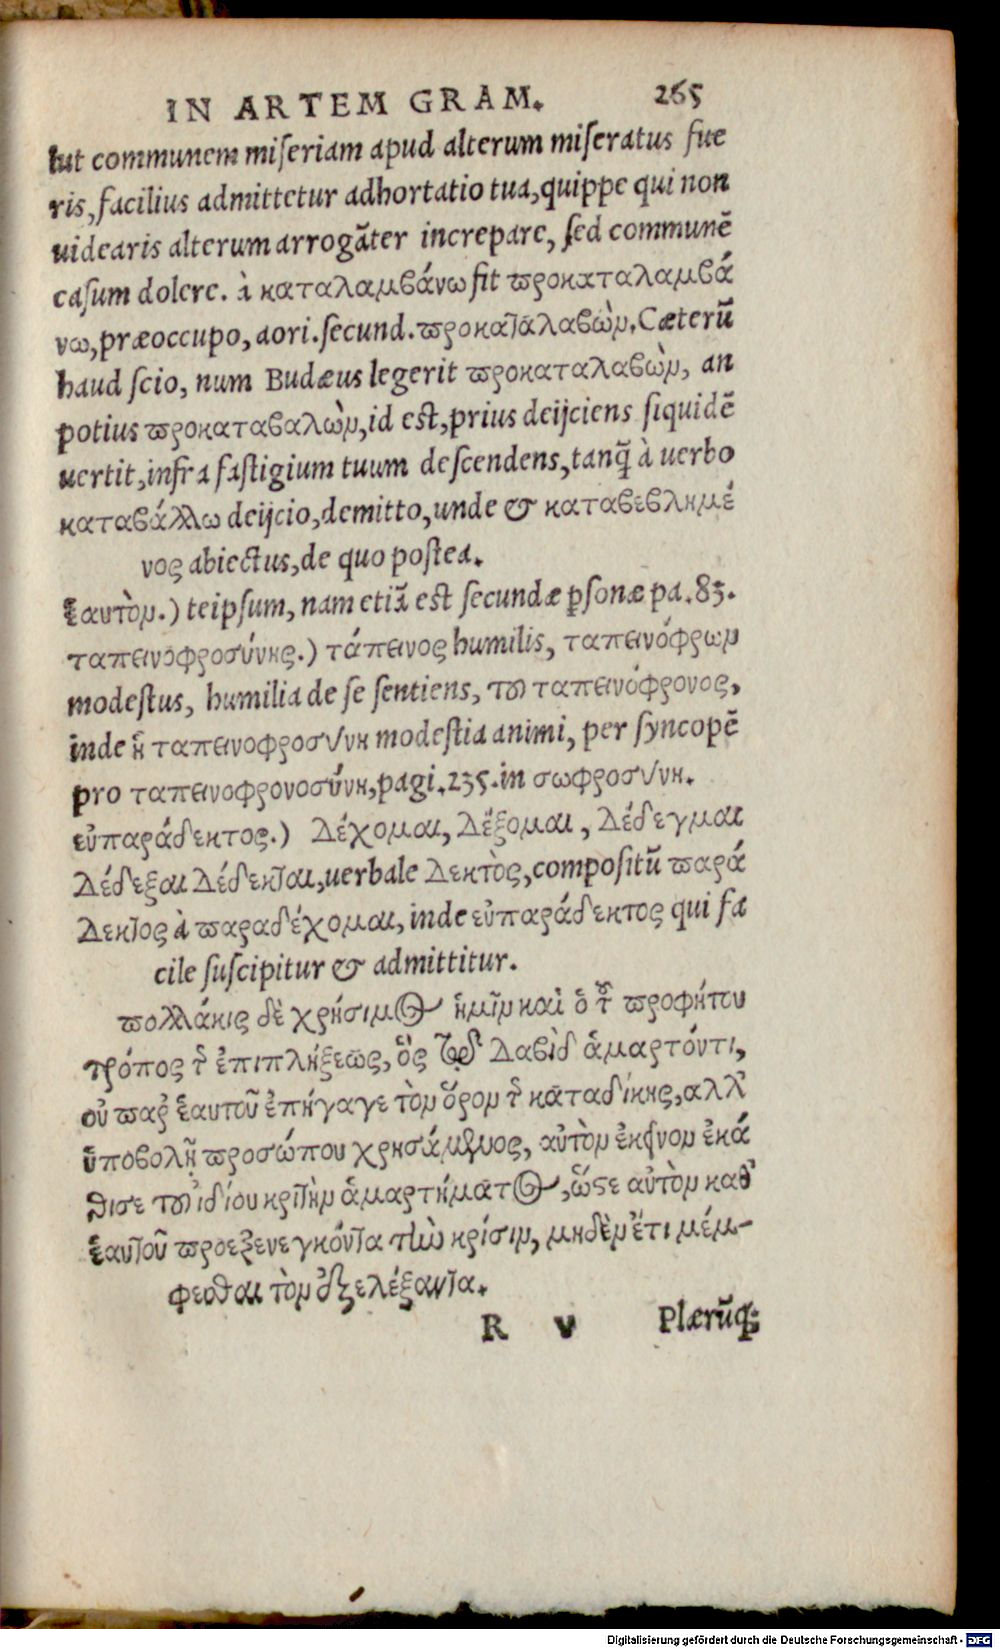 IN ARTEM GRAM. 265
lut communem miseriam apud alterum miseratus fue
ris, facilius admittetur adhortatio tua, quippe qui non
uidearis alterum arrogãter increpare, sed communẽ
casum dolere. à καταλαμβάνω fit προκαταλαμβά
νω, præoccupo, aori. secund. προκαταλαβὼν. Cæterũ
haud scio, num Budæus legerit προκαταλαβὼν, an
potius προκαταβαλὼν, id est, prius deijciens siquidẽ
uertit, infra fastigium tuum descendens, tanq̃ à uerbo
καταβάλλω deijcio, demitto, unde & καταβεβλημέ
νος abiectus, de quo postea.
ἑαυτὸν.) teipsum, nam etiã est secundæ ꝑsonæ pa. 83.
ταπεινοφροσύνης.) τάπεινος humilis, ταπεινόφρων
modestus, humilia de se sentiens, τοῦ ταπεινόφρονος,
inde ἡ ταπεινοφροσύνη modestia animi, per syncopẽ
pro ταπεινοφρονοσύνη, pagi. 235. in σωφροσύνη.
εὐπαράδεκτος.) δέχομαι, δέξομαι, δέδεγμαι
δέδεξαι δέδεκται, uerbale δεκτὸς, compositũ παρά
δεκτος à παραδέχομαι, inde εὐπαράδεκτος qui fa
cile suscipitur & admittitur.
πολλάκις δὲ χρήσιμος ἡμῖν καὶ ὁ τοῦ προφήτου
τρόπος τῆς ἐπιπλήξεως, ὃς τῷ Δαβὶδ ἁμαρτόντι,
οὐ παρ' ἑαυτοῦ ἐπήγαγε τὸν ὅρον τῆς καταδίκης, ἀλλ'
ὑποβολῇ προσώπου χρησάμενος, αὐτὸν ἐκεῖνον ἐκά
θισε τοῦ ἰδίου κριτὴν ἁμαρτήματος, ὥστε αὐτὸν καθ'
ἑαυτοῦ προεξενεγκόντα τὴν κρίσιν, μηδὲν ἔτι μέμ-
φεσθαι τὸν ἐξελέξαντα.
R v Plærũq;
Digitalisierung gefördert durch die Deutsche Forschungsgemeinschaft - DFG